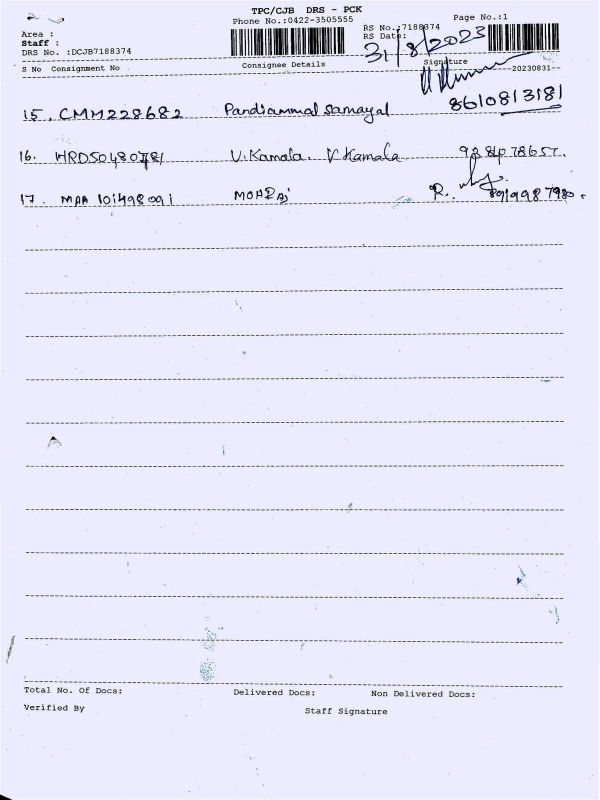 TPC/CJB DRS - PCK
Phone No.:0422-3505555
Page No.:1
Area :
RS No.:7188374
Staff :
RS Date:
31/8/2023
DRS No. :DCJB7188374
S No Consignment No
Consignee Details
Signature
20230831
15. CMM228682 Pandiammal samayal 8610813181
16. HRD50480781 V.Kamala. V Kamala
17. MAA 101498091 MOHRaj R.
Total No. Of Docs:
Delivered Docs:
Non Delivered Docs:
Verified By
Staff Signature